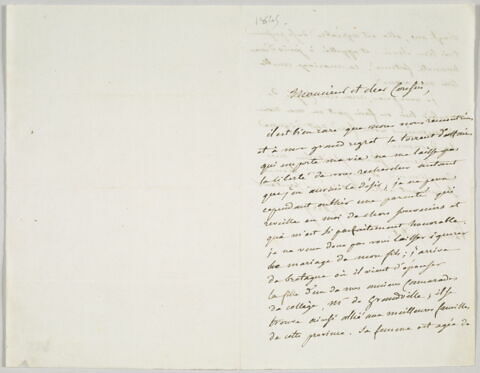 1845.
Monsieur et cher Cousin,
il est bien rare que nous nous rencontrions
et à mon grand regret le torrent d'affaires
qui emporte ma vie ne me laisse pas
la liberté de vous rechercher autant
que j'en aurois le désir, je ne peux
cependant oublier une parenté qui
reveille en moi de chers souvenirs et
qui m'est si parfaitement honorable.
je ne veux donc pas vous laisser ignorer
le mariage de mon fils; j'arrive
de bretagne où il vient d'épouser
la fille d'un de mes anciens camarades
de collège, Mr de Grandville; il se
trouve ainsi allié aux meilleures familles
de cette province. Sa femme est agée de